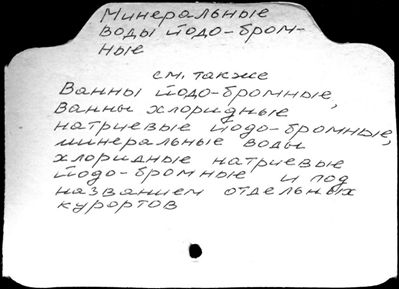 Минеральные
воды йодо-бром-
ные
см. также
Ванны йодо-бромные,
ванны хлоридные
натриевые йодо-бромные,
минеральные воды
хлоридные натриевые
йодо-бромные и под
названием отдельных
курортов